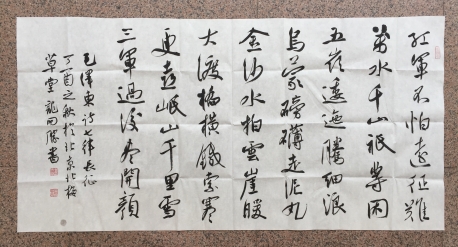 红軍不怕遠征難
萬水千山祇等闲
五嶺逶迤騰細浪
烏蒙磅礴走泥丸
金沙水拍雲崖暖
大渡橋横鐵索寒
更喜岷山千里雪
三軍過後盡開顏
毛澤東詩七律長征
丁酉之秋於北京北梅
草堂 龍田勝書